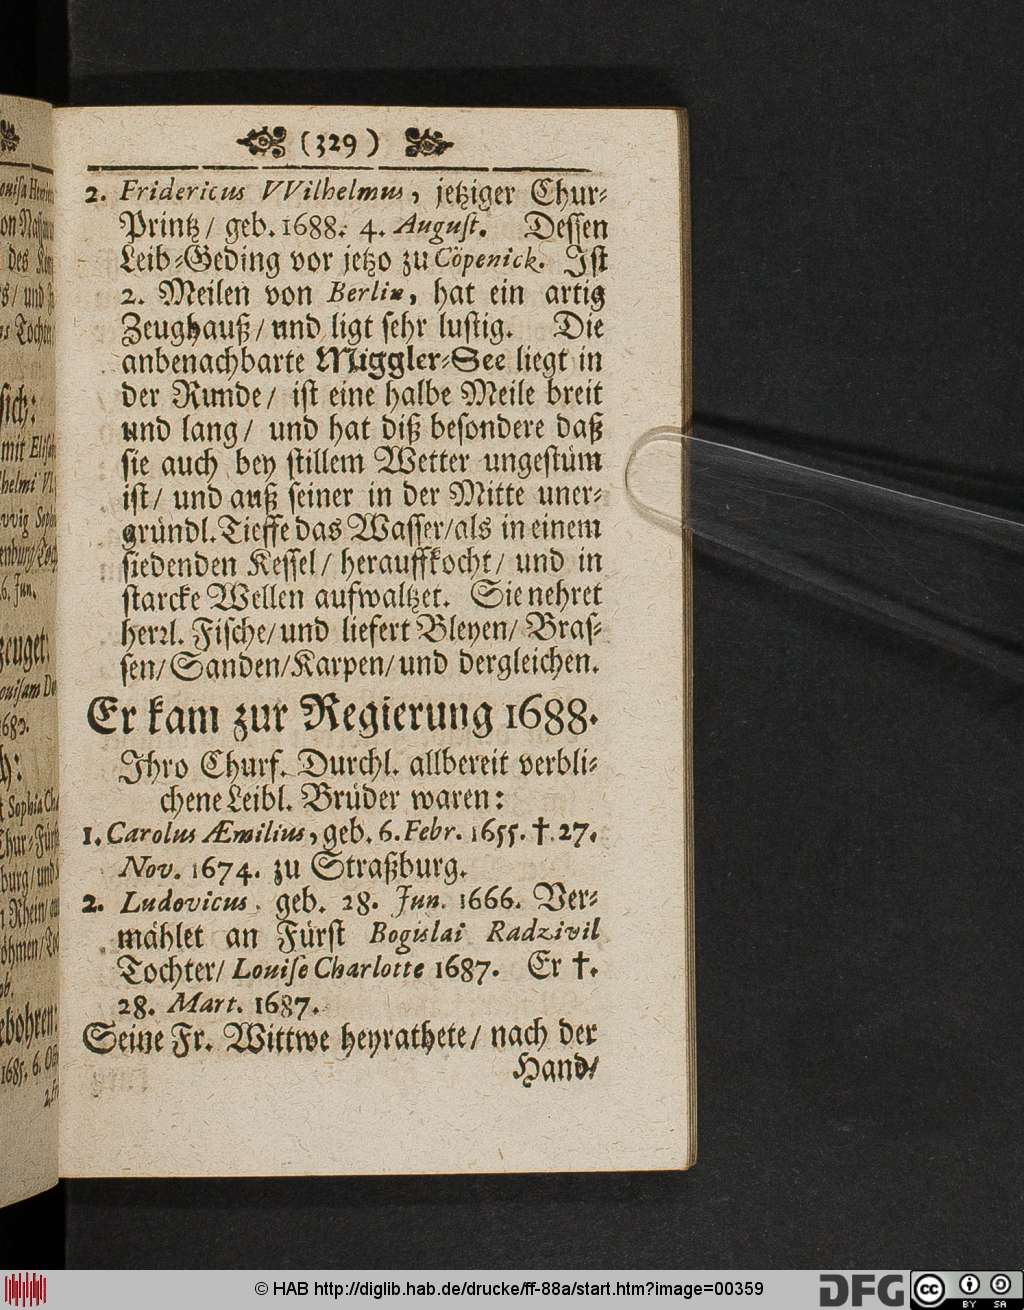 (329)
2. Fridericus VVilhelmus, jetziger Chur-
Printz/ geb. 1688. 4. August. Dessen
Leib-Geding vor jetzo zu Cöpenick. Ist
2. Meilen von Berlin, hat ein artig
Zeughauß/ und ligt sehr lustig. Die
anbenachbarte Miggler-See liegt in
der Runde/ ist eine halbe Meile breit
und lang/ und hat diß besondere daß
sie auch bey stillem Wetter ungestüm
ist/ und auß seiner in der Mitte uner-
gründl. Tieffe das Wasser/ als in einem
siedenden Kessel/ herauffkocht/ und in
starcke Wellen aufwaltzet. Sie nehret
herrl. Fische/ und liefert Bleyen/ Bras-
sen/ Sanden/ Karpen/ und dergleichen.
Er kam zur Regierung 1688.
Ihro Churf. Durchl. allbereit verbli-
chene Leibl. Brüder waren:
1. Carolus Æmilius, geb. 6. Febr. 1655. † 27.
Nov. 1674. zu Straßburg.
2. Ludovicus. geb. 28. Jun. 1666. Ver-
mählet an Fürst Bogislai Radzivil
Tochter/ Louise Charlotte 1687. Er †.
28. Mart. 1687.
Seine Fr. Wittwe heyrathete/ nach der
Hand/
© HAB http://diglib.hab.de/drucke/ff-88a/start.htm?image=00359
DFG
cc BY SA